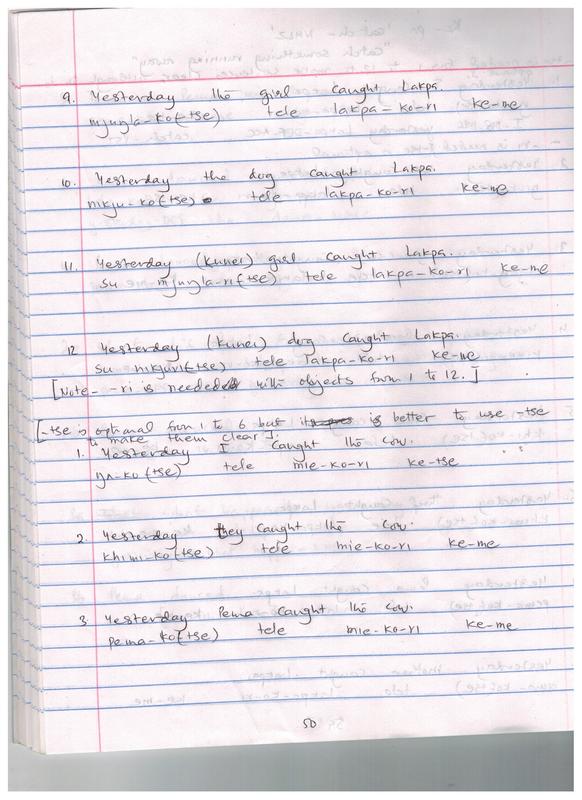 9. Yesterday the girl caught Lakpa.
mjuŋla-ko(-tse) tele lakpa-ko-ri ke-me
10. Yesterday the dog caught Lakpa.
nikju-ko(-tse) tele lakpa-ko-ri ke-me
11. Yesterday (kunei) girl caught Lakpa.
su mjuŋla-ri(-tse) tele lakpa-ko-ri ke-me
12 Yesterday (kunei) dog caught Lakpa.
su nikjuri(-tse) tele lakpa-ko-ri ke-me
[Note- -ri is needed with objects from 1 to 12.]
[-tse is optional from 1 to 6 but it is better to use -tse
to make them clear].
1. Yesterday I caught the cow.
ŋʌ-ko(-tse) tele mie-ko-ri ke-tse
2. Yesterday they caught the cow.
khimi-ko(-tse) tele mie-ko-ri ke-me
3 Yesterday Pema caught the cow.
pema-ko(-tse) tele mie-ko-ri ke-me
50